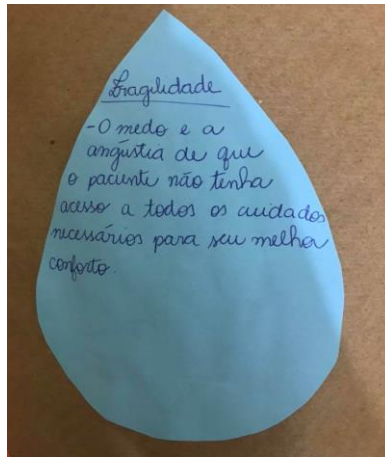 Fragilidade
-O medo e a
angústia de que
o paciente não tenha
acesso a todos os cuidados
necessários para seu melhor
conforto.